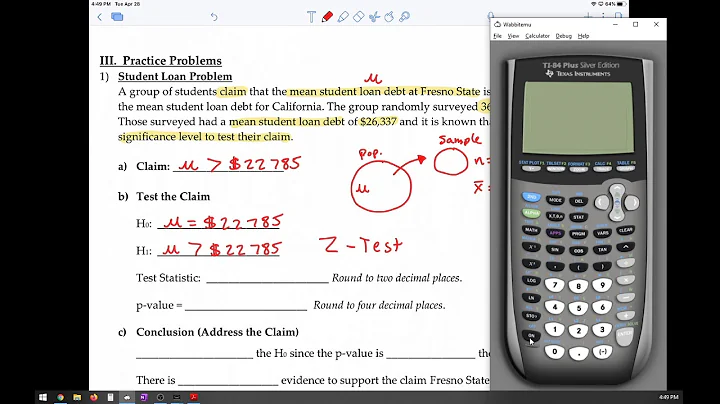 4:49 PM Tue Apr 28
64%
III. Practice Problems
1) Student Loan Problem
μ
A group of students claim that the mean student loan debt at Fresno State is
the mean student loan debt for California. The group randomly surveyed 36
Those surveyed had a mean student loan debt of $26,337 and it is known tha
significance level to test their claim.
a) Claim: μ > $22785
pop.
sample
μ
n=
x̄=
b) Test the Claim
H0: μ = $22785
H1: μ > $22785
Z-Test
Test Statistic: Round to two decimal places.
p-value = Round to four decimal places.
c) Conclusion (Address the Claim)
the H0 since the p-value is the
There is evidence to support the claim Fresno State
Wabbitemu
File View Calculator Debug Help
TI-84 Plus Silver Edition
TEXAS INSTRUMENTS
STAT PLOT F1 TBLSET F2 FORMAT F3 CALC F4 TABLE F5
2ND MODE DEL
ALPHA X,T,θ,n STAT
MATH APPS PRGM VARS CLEAR
SIN COS TAN ^
, ( )
LOG 7 8 9
LN 4 5 6
STO 1 2 3
ON 0 . (-) ENTER
4:49 PM